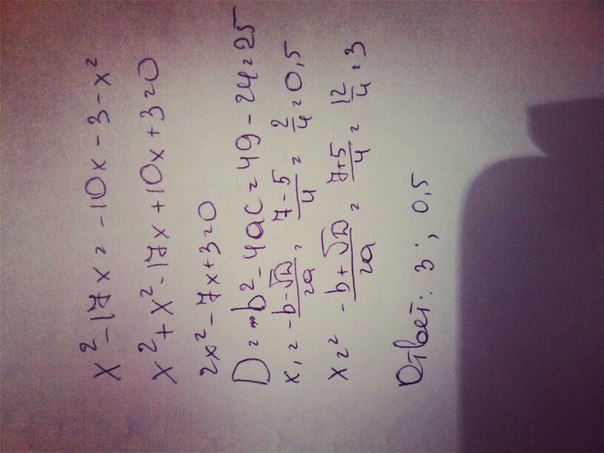 x² - 17x = -10x - 3 - x²
x² + x² - 17x + 10x + 3 = 0
2x² - 7x + 3 = 0
D = b² - 4ac = 49 - 24 = 25
x₁ = -b-√D/2a = 7-5/4 = 2/4 = 0,5
x₂ = -b+√D/2a = 7+5/4 = 12/4 = 3
Ответ: 3; 0,5